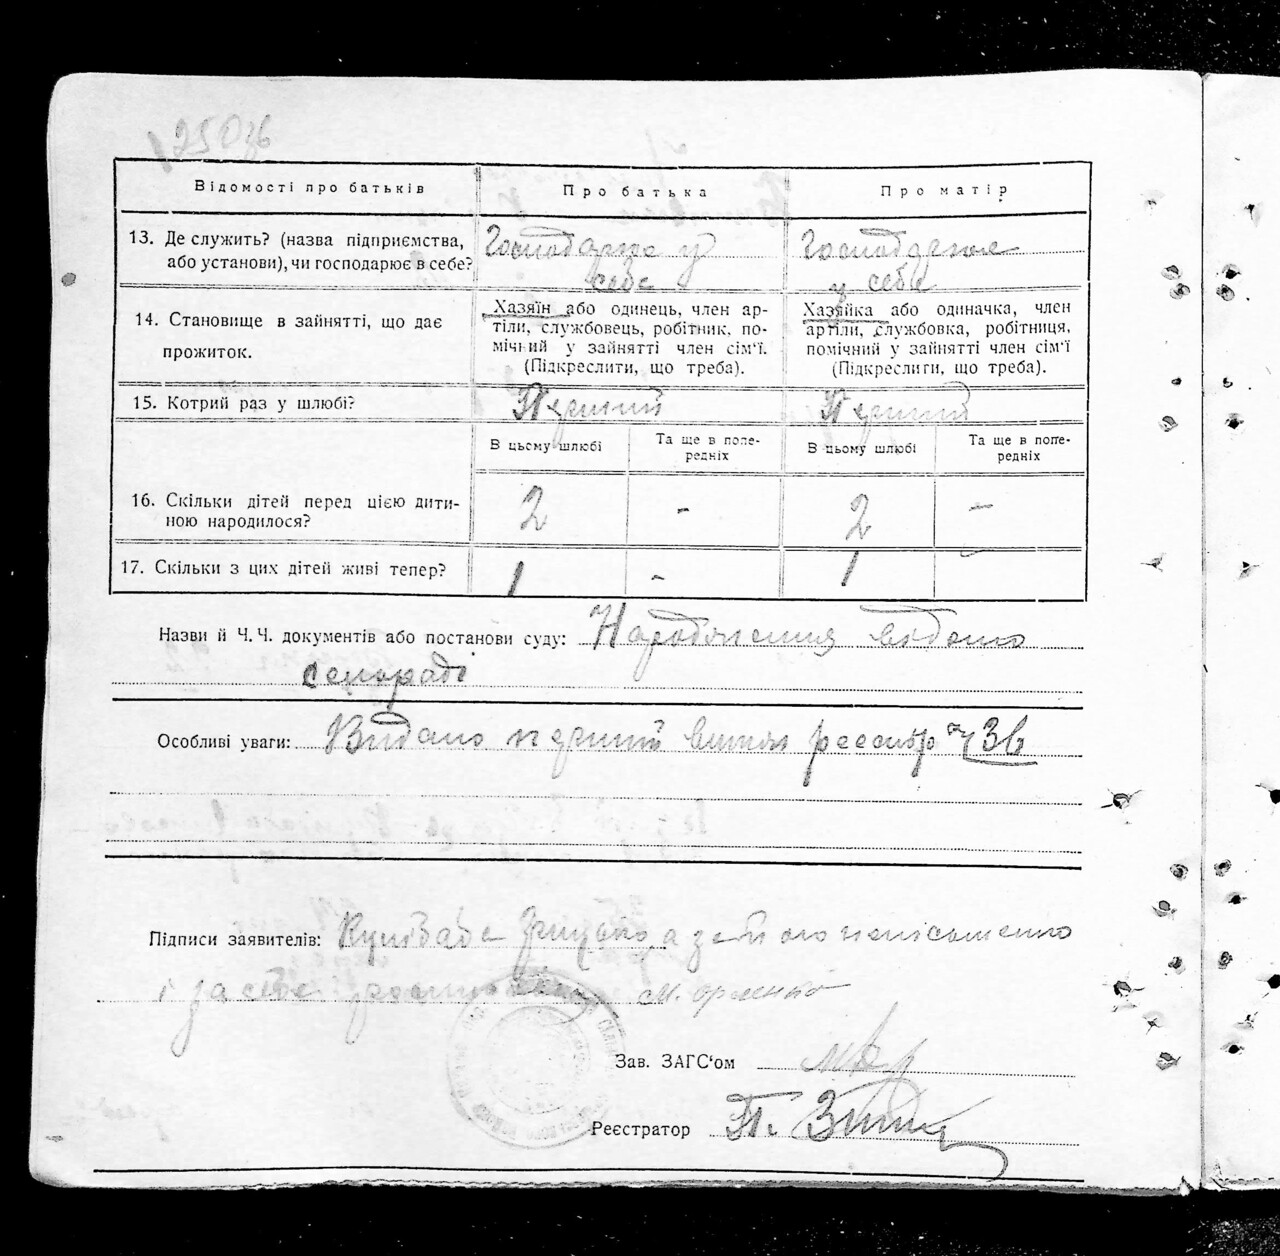 125 Озб
Відомості про батьків
Про батька
Про матір
13. Де служить? (назва підприємства,
або установи), чи господарює в себе?
Господарює у
себе
Господарює
у себе
14. Становище в зайнятті, що дає
прожиток.
Хазяїн або одинець, член ар-
тіли, службовець, робітник, по-
мічний у зайнятті член сім'ї.
(Підкреслити, що треба).
Хазяйка або одиначка, член
артіли, службовка, робітниця,
помічний у зайнятті член сім'ї
(Підкреслити, що треба).
15. Котрий раз у шлюбі?
Перший
Перший
В цьому шлюбі
Та ще в попе-
редніх
В цьому шлюбі
Та ще в попе-
редніх
16. Скільки дітей перед цією дити-
ною народилося?
2
-
2
-
17. Скільки з цих дітей живі тепер?
1
-
1
Назви й Ч.Ч. документів або постанови суду: Народження відомо
сельраді
Особливі уваги: Видано перший витяг реєстр 36
Підписи заявителів: а за його неписьменно
і за себе
Зав. ЗАГС'ом
Реєстратор П.